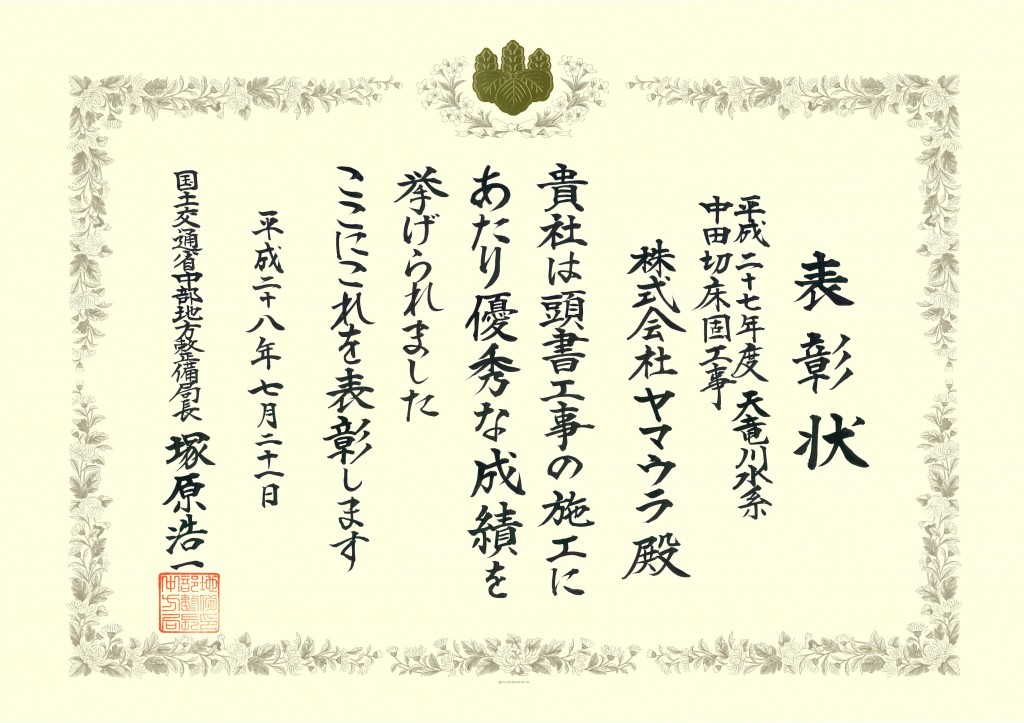 表彰状
平成二十七年度 天竜川水系
中田切床固工事
株式会社ヤマウラ殿
貴社は頭書工事の施工に
あたり優秀な成績を
挙げられました
ここにこれを表彰します
平成二十八年七月二十一日
国土交通省中部地方整備局長 塚原浩一